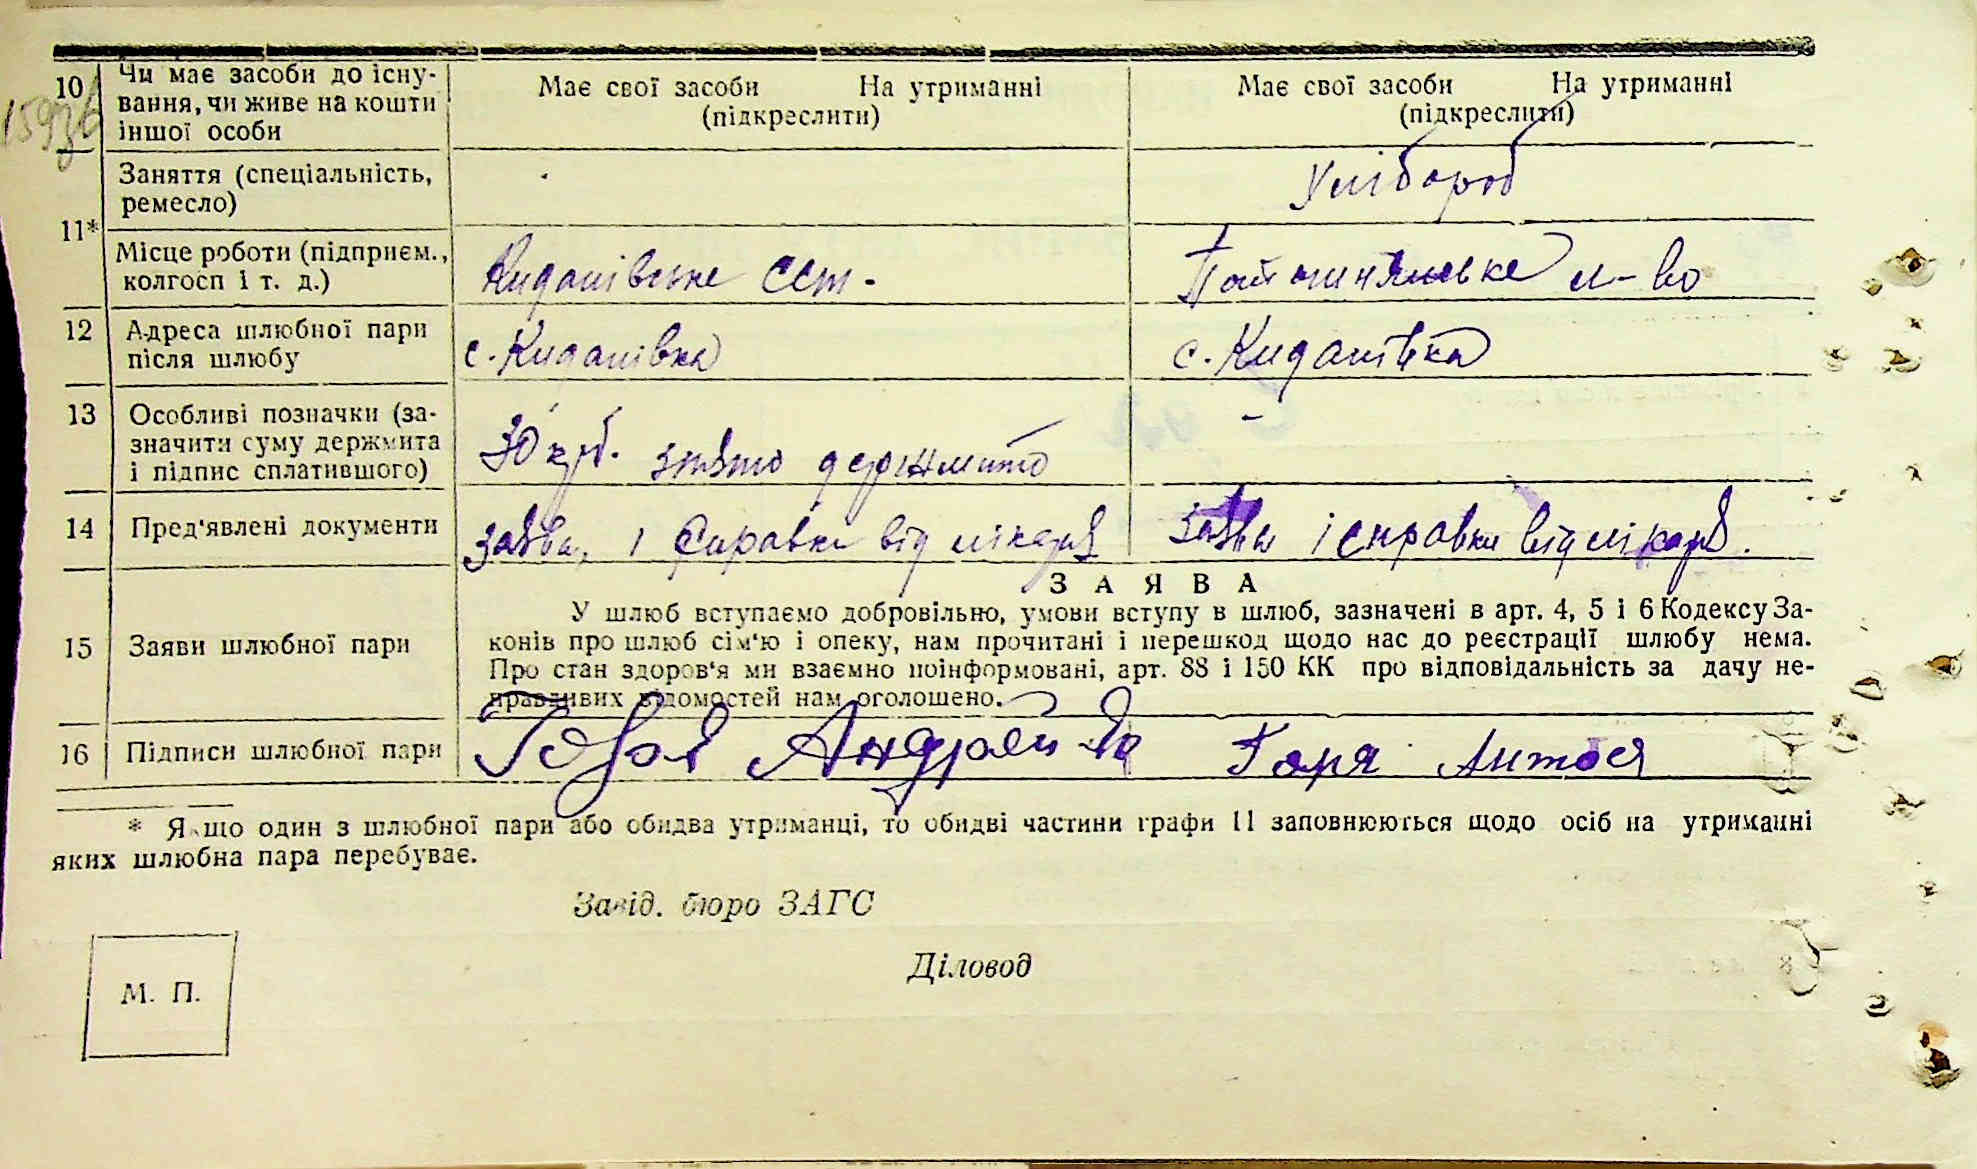 10 Чи має засоби до існу- Має свої засоби На утриманні Має свої засоби На утриманні
вання, чи живе на кошти (підкреслити) (підкреслити)
іншої особи
Заняття (спеціальність,
ремесло)
11*
Місце роботи (підприєм.,
колгосп і т. д.)
12 Адреса шлюбної пари
після шлюбу с. Кидашівка с. Кидашівка
13 Особливі позначки (за- -
значити суму держмита 30 крб. знято держмито
і підпис сплатившого)
14 Пред'явлені документи заява, і справка від лікаря заява і справка від лікаря.
З А Я В А
У шлюб вступаємо добровільно, умови вступу в шлюб, зазначені в арт. 4, 5 і 6 Кодексу За-
15 Заяви шлюбної пари конів про шлюб сім'ю і опеку, нам прочитані і перешкод щодо нас до реєстрації шлюбу нема.
Про стан здоров'я ми взаємно поінформовані, арт. 88 і 150 КК про відповідальність за дачу не-
правдивих відомостей нам оголошено.
16 Підписи шлюбної пари Горя Горя Антося
* Якщо один з шлюбної пари або обидва утриманці, то обидві частини графи 11 заповнюються щодо осіб на утриманні
яких шлюбна пара перебуває.
Завід. бюро ЗАГС
Діловод
М. П.